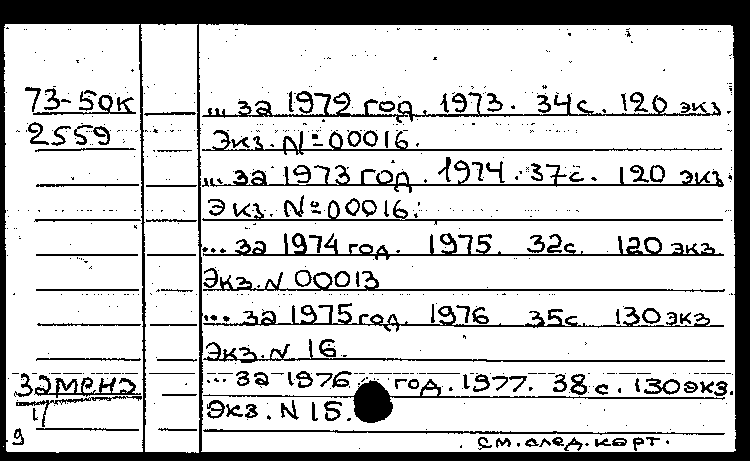 73-50к ... за 1972 год. 1973. 34с. 120 экз.
2559 Экз. №00016.
... за 1973 год. 1974. 37с. 120 экз.
Экз. №00016.
... за 1974 год. 1975. 32с. 120 экз
Экз. N 00013
... за 1975 год. 1976 35с. 130 экз
Экз. N 16.
замена ... за 1976 год. 1977. 38с. 130экз.
Экз. N 15.
9 . см. след. карт.